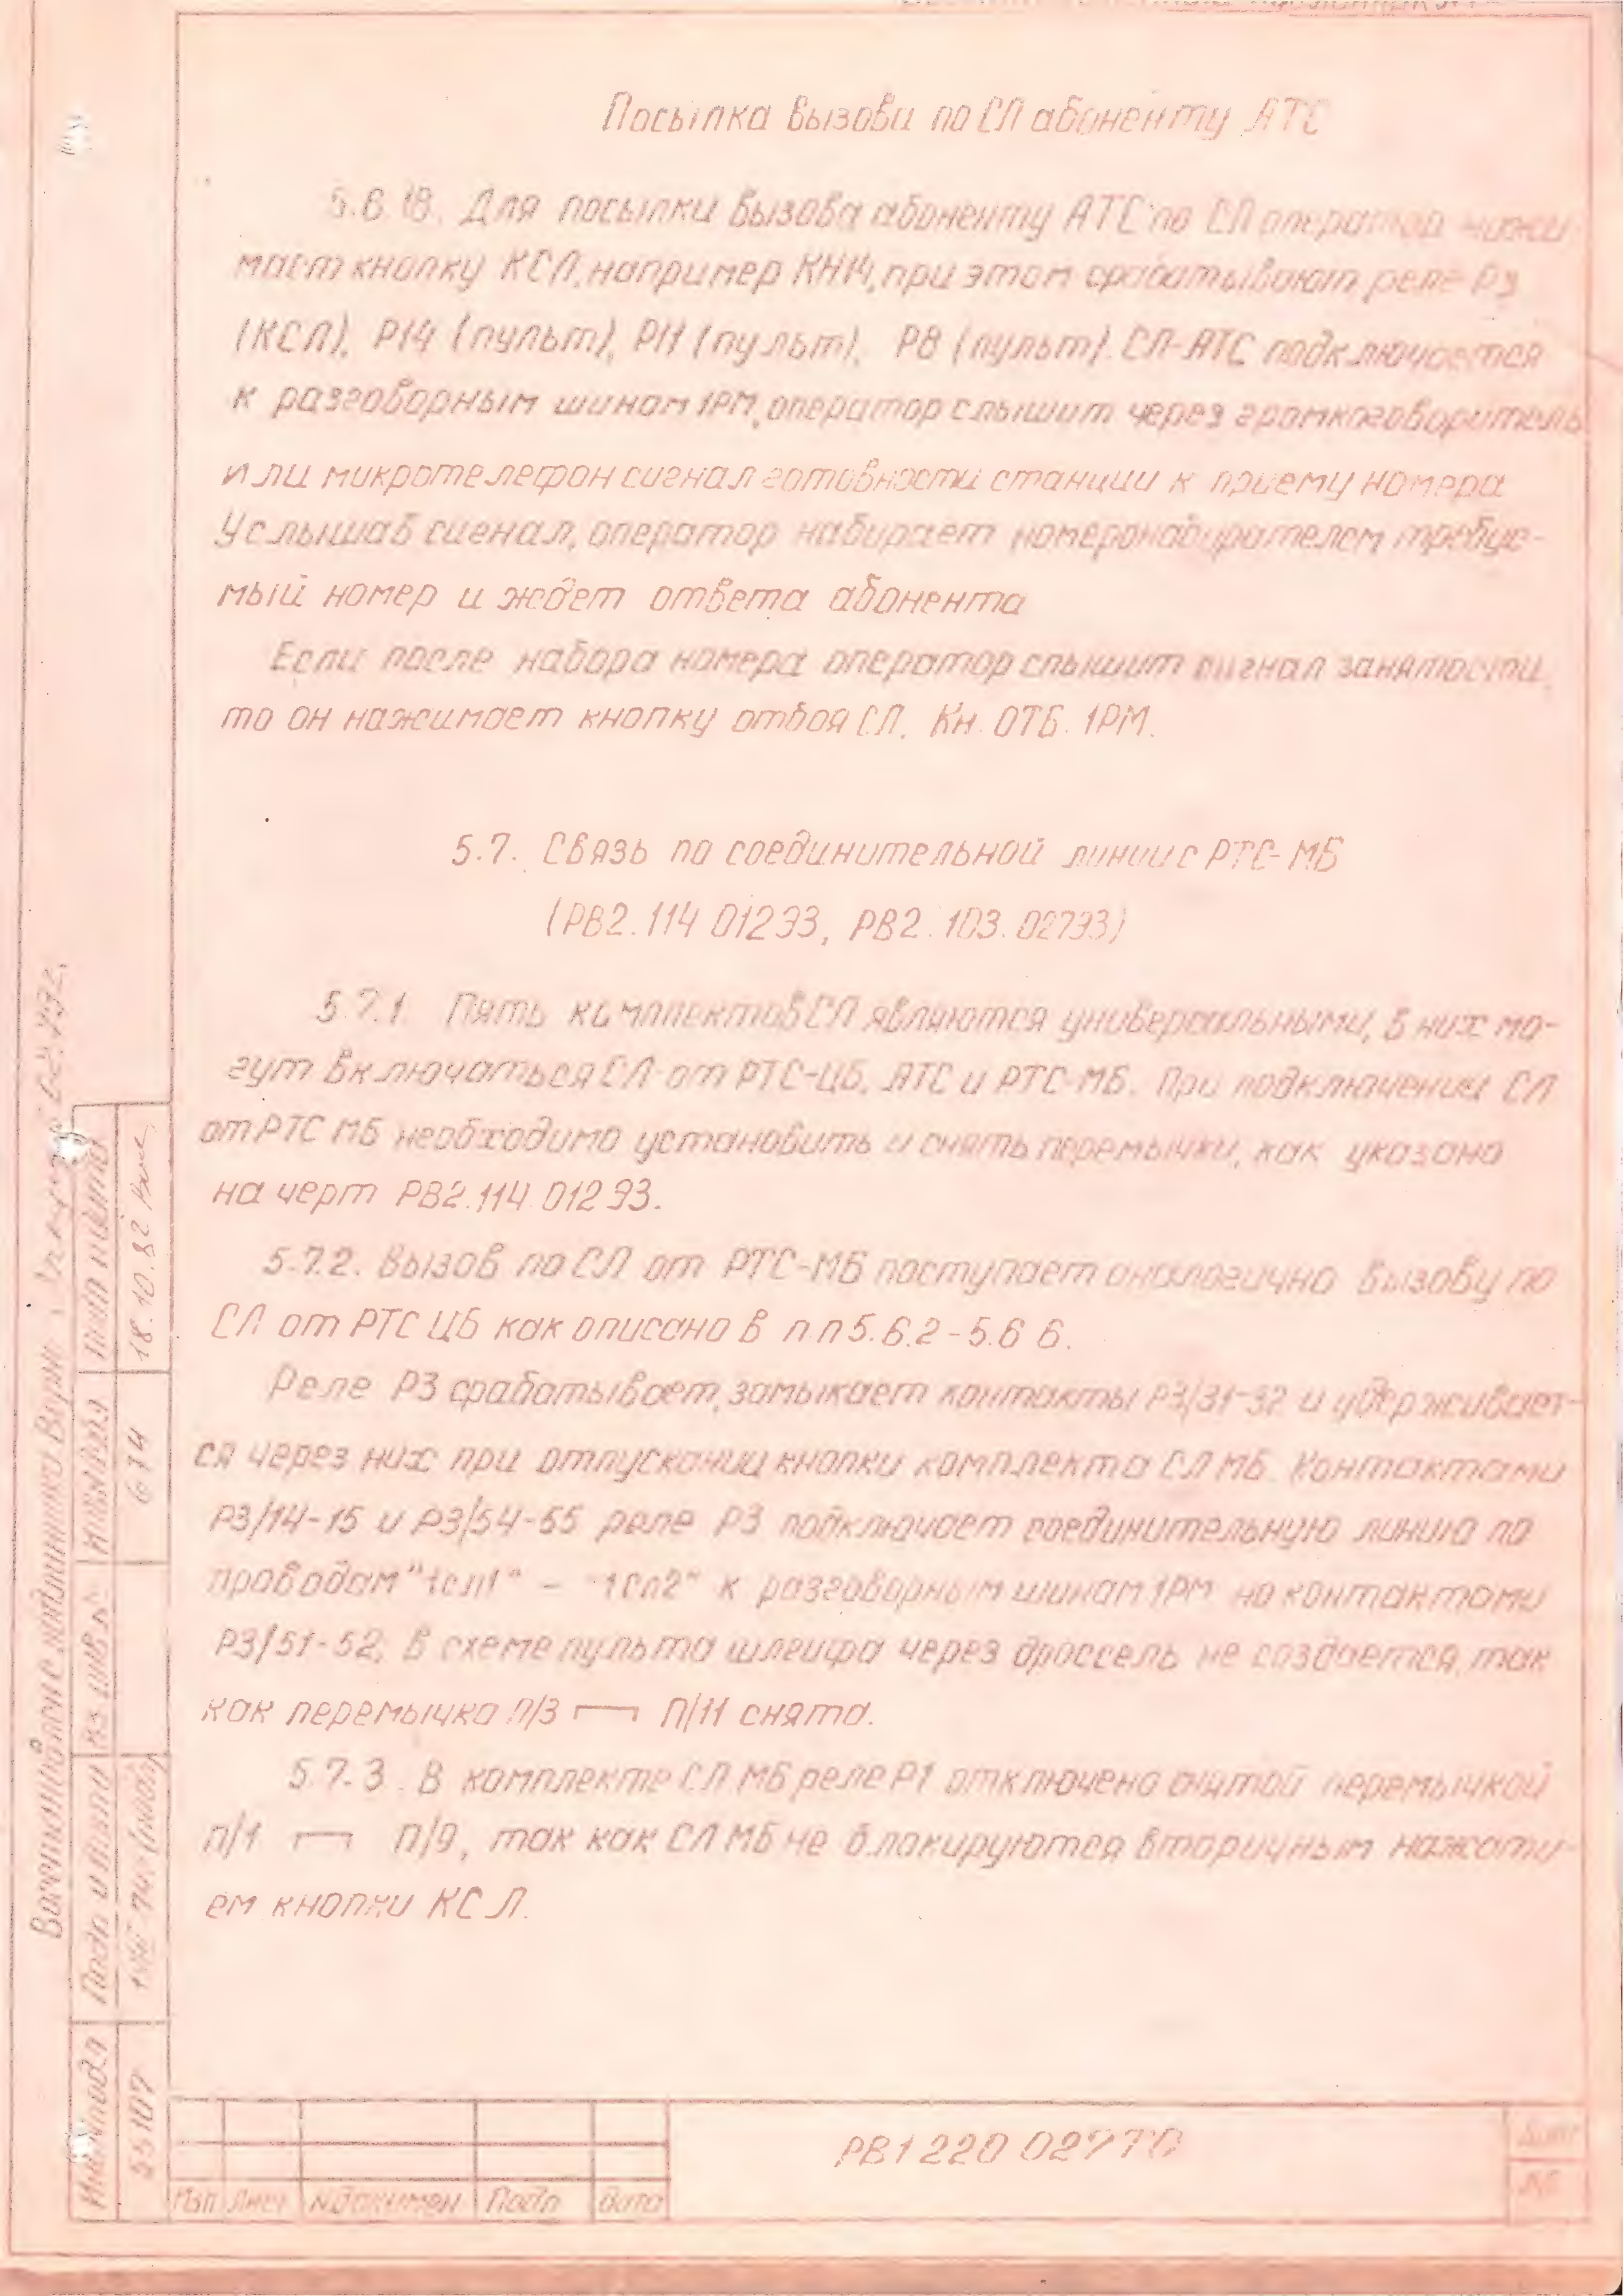 Посылка вызова по СЛ абоненту АТС
5.6.18. Для посылки вызова абоненту АТС по СЛ оператор нажи-
мает кнопку КСЛ, например КН14, при этом срабатывают реле Р3
(КСЛ), Р14 (пульт), Р11 (пульт), Р8 (пульт). СЛ-АТС подключается
к разговорным шинам 1РМ, оператор слышит через громкоговоритель
или микротелефон сигнал готовности станции к приему номера
Услышав сигнал, оператор набирает номеронабирателем требуе-
мый номер и ждет ответа абонента
Если после набора номера оператор слышит сигнал занятости,
то он нажимает кнопку отбоя СЛ. Кн. ОТБ. 1РМ.
5.7. Связь по соединительной линии с РТС-МБ
(РВ2.114 012Э3, РВ2.103.027Э3)
5.7.1. Пять комплектов СЛ являются универсальными, в них мо-
гут включаться СЛ от РТС-ЦБ, АТС и РТС-МБ. При подключении СЛ
от РТС МБ необходимо установить и снять перемычки, как указано
на черт РВ2.114.012Э3.
5.7.2. Вызов по СЛ от РТС-МБ поступает аналогично вызову по
СЛ от РТС ЦБ как описано в п п 5.6.2-5.6 6.
Реле Р3 срабатывает, замыкает контакты Р3/31-32 и удерживает-
ся через них при отпускании кнопки комплекта СЛ МБ. Контактами
Р3/14-15 и Р3/54-55 реле Р3 подключает соединительную линию по
проводам "1сл1" - "1сл2" к разговорным шинам 1РМ но контактами
Р3/51-52, в схеме пульта шлейфа через дроссель не создается, так
как перемычка П/3 ┌─┐ П/11 снята.
5.7.3. В комплекте СЛ МБ реле Р1 отключено снятой перемычкой
П/1 ┌─┐ П/9, так как СЛ МБ не блокируются вторичным нажати-
ем кнопки КСЛ.
РВ1 220 027ТО
Изп Лист №докумен Подп дата
Лист
Инв№подл Подп и дата Вз инв № Инв№дубл Подп и дата
55107 674 18.10.82